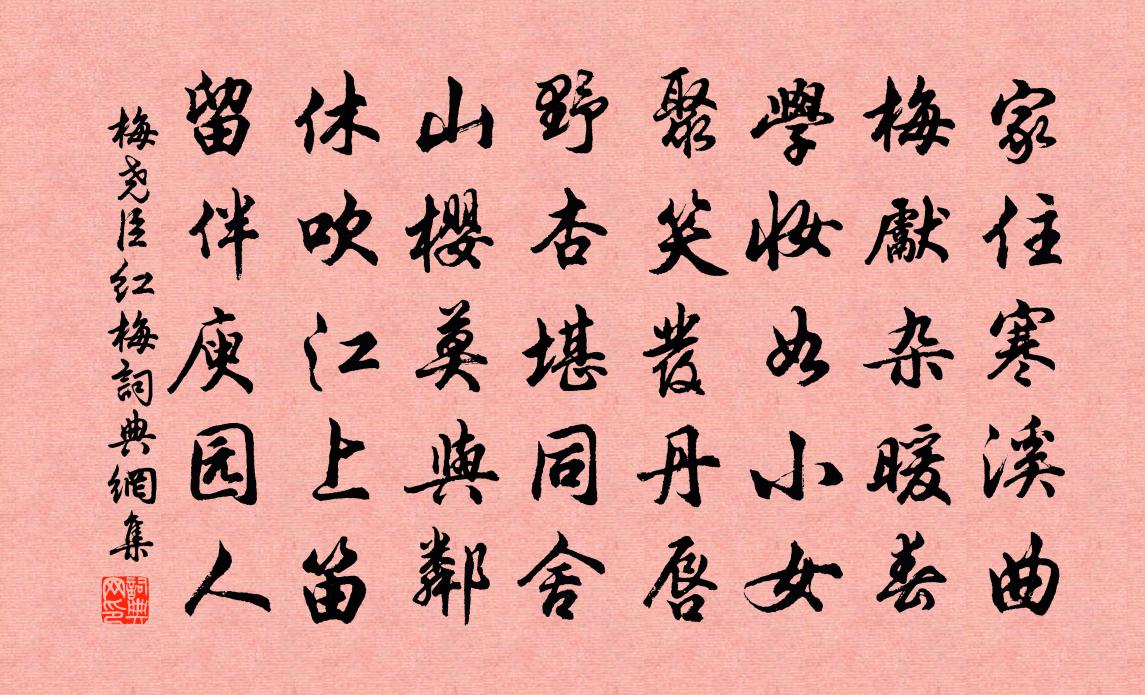 家住寒溪曲
梅獻杂暖春
學妆如小女
聚笑發丹唇
野杏堪同舍
山櫻莫與鄰
休吹江上笛
留伴庾园人
梅尧臣红梅詞典網集
詞典网印